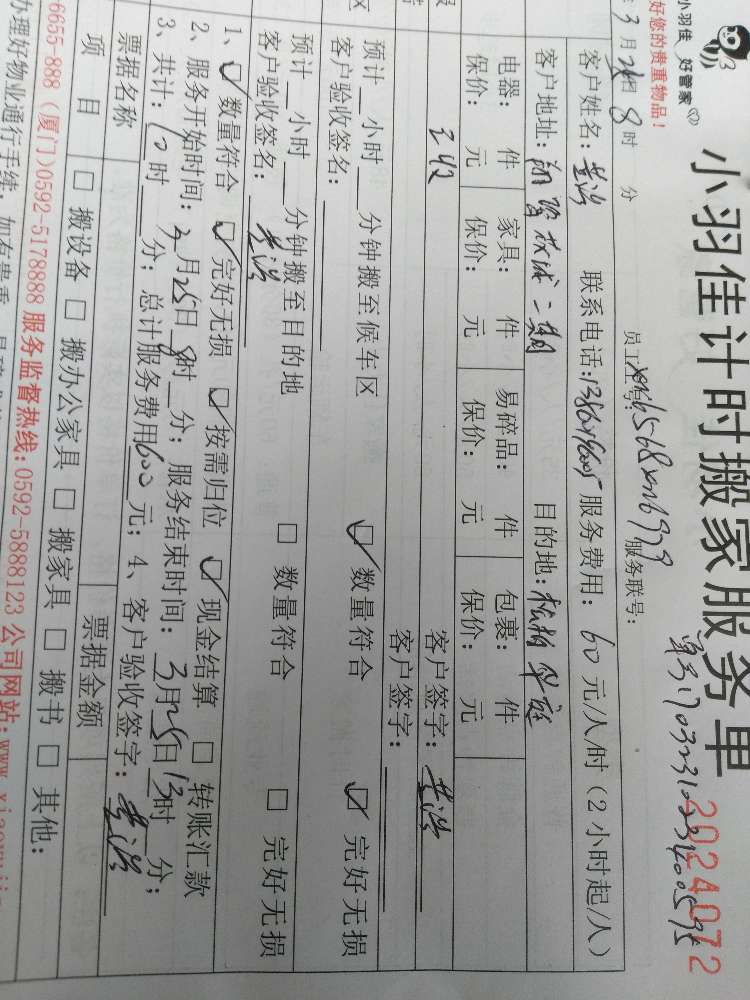 小羽佳 好管家
好您的贵重物品！
小羽佳计时搬家服务单
2024072
单号170323102340053
员工工号：xm6568xm6979 服务联号：
3月25日8时 分
客户姓名： 联系电话： 服务费用：60元/人/时（2小时起/人）
客户地址： 二期 目的地：
电器： 件 家具： 件 易碎品： 件 包裹： 件
保价： 元 保价： 元 保价： 元 保价： 元
客户签字：
客户签字：
预计__小时__分钟搬至候车区 数量符合 完好无损
客户验收签名：
预计__小时__分钟搬至目的地 数量符合 完好无损
客户验收签名：
1、数量符合 完好无损 按需归位 现金结算 转账汇款
2、服务开始时间：3月25日8时__分；服务结束时间：3月25日13时__分；
3、共计：10时__分；总计服务费用600元；4、客户验收签字：
票据名称 票据金额
项目 搬设备 搬办公家具 搬家具 搬书 其他：
6655-888（厦门）0592-5178888 服务监督热线：0592-5888123 公司网站：www.
办理好物业通行手续，如有贵重